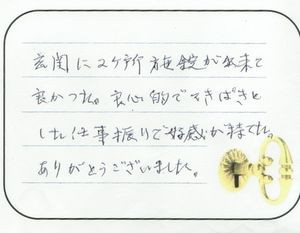 玄関に2ヶ所施錠が出来て
良かった。良心的でてきぱきと
した仕事振りで好感が持てた。
ありがとうございました。